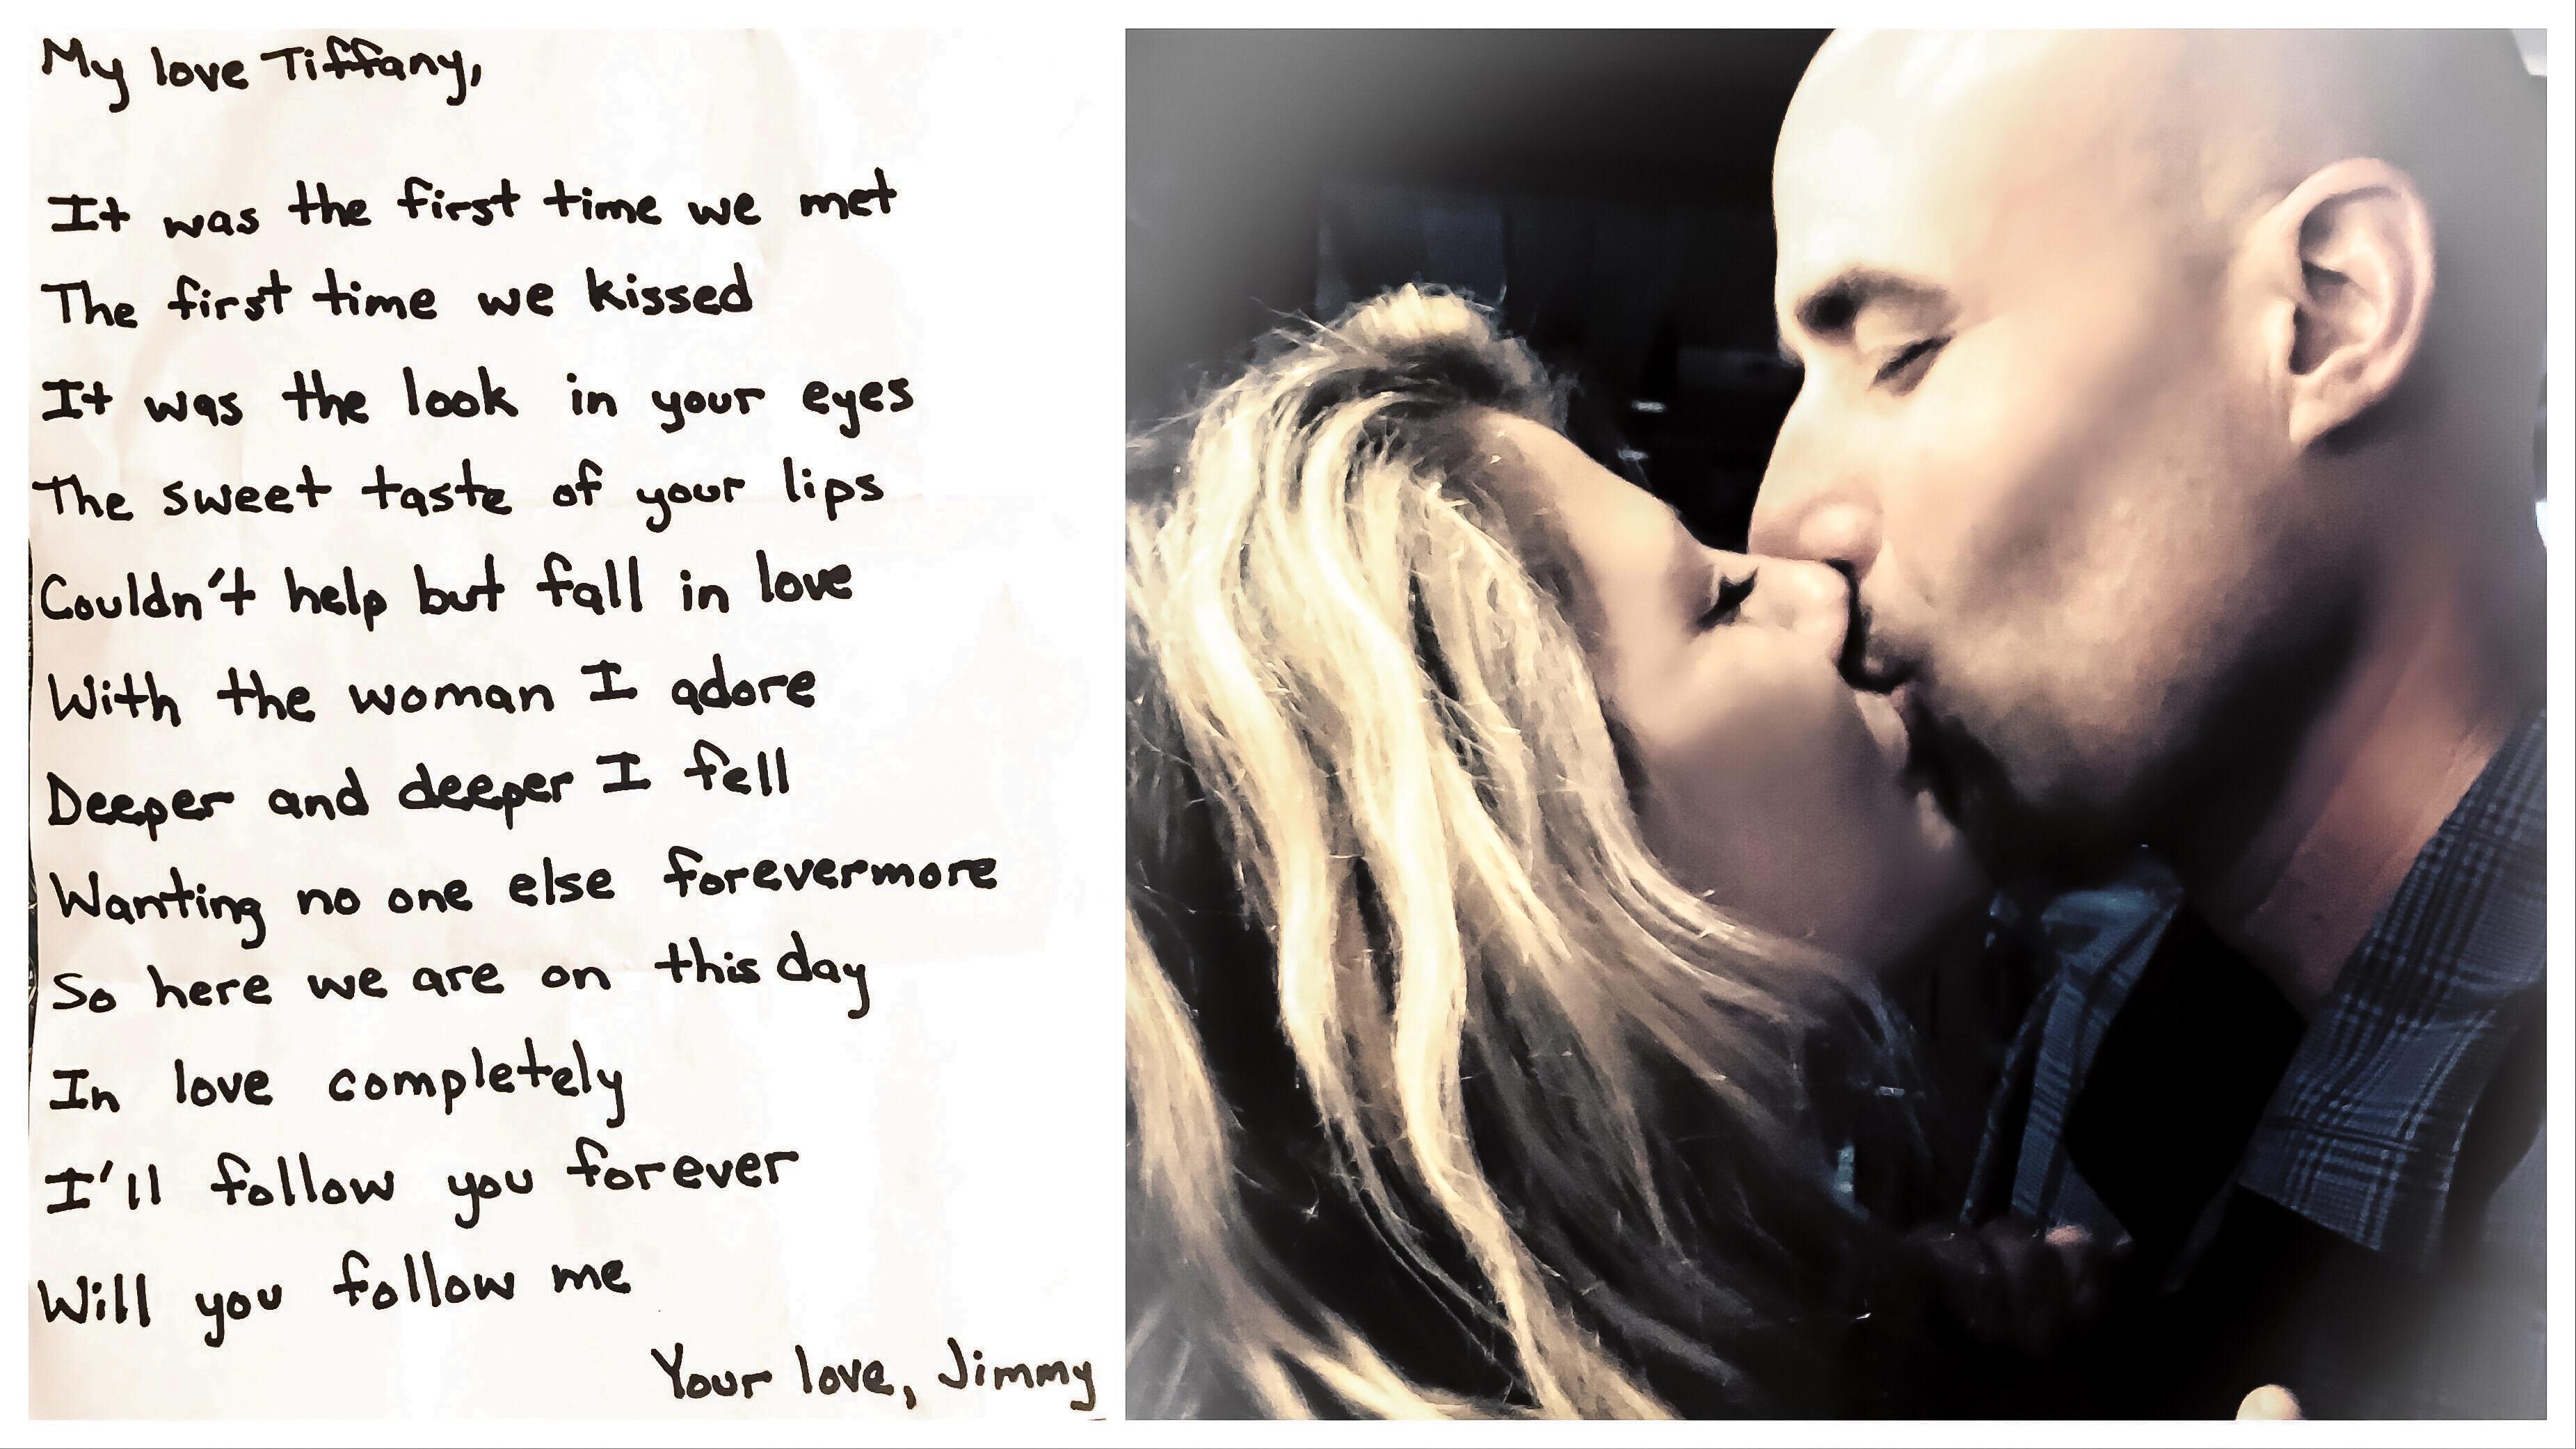 My love Tiffany,
It was the first time we met
The first time we kissed
It was the look in your eyes
The sweet taste of your lips
Couldn't help but fall in love
With the woman I adore
Deeper and deeper I fell
Wanting no one else forevermore
So here we are on this day
In love completely
I'll follow you forever
Will you follow me
Your love, Jimmy